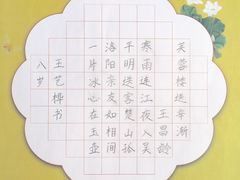 芙蓉楼送辛渐
王昌龄
寒雨连江夜入吴
平明送客楚山孤
洛阳亲友如相问
一片冰心在玉壶
王艺桦书
八岁